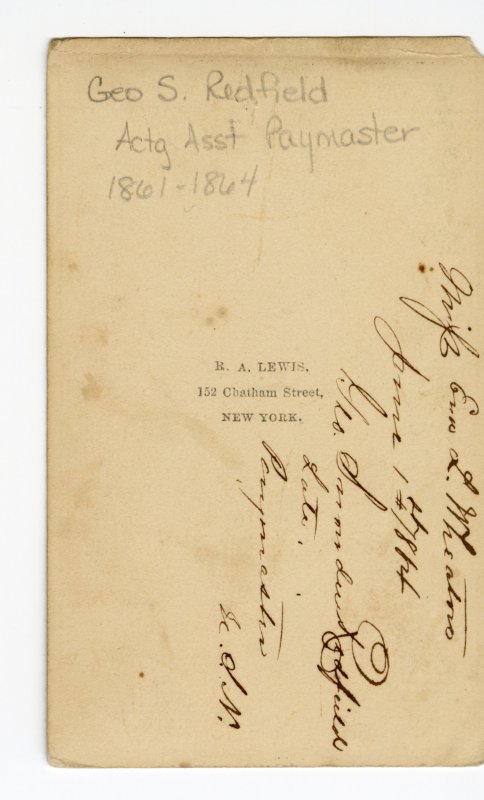 Geo S. Redfield
Actg Asst Paymaster
1861-1864
R. A. LEWIS,
152 Chatham Street,
NEW YORK.
Miss L. Wheaton
June 1st 1864
Geo. Redfield
Late
Paymaster
U.S.N.